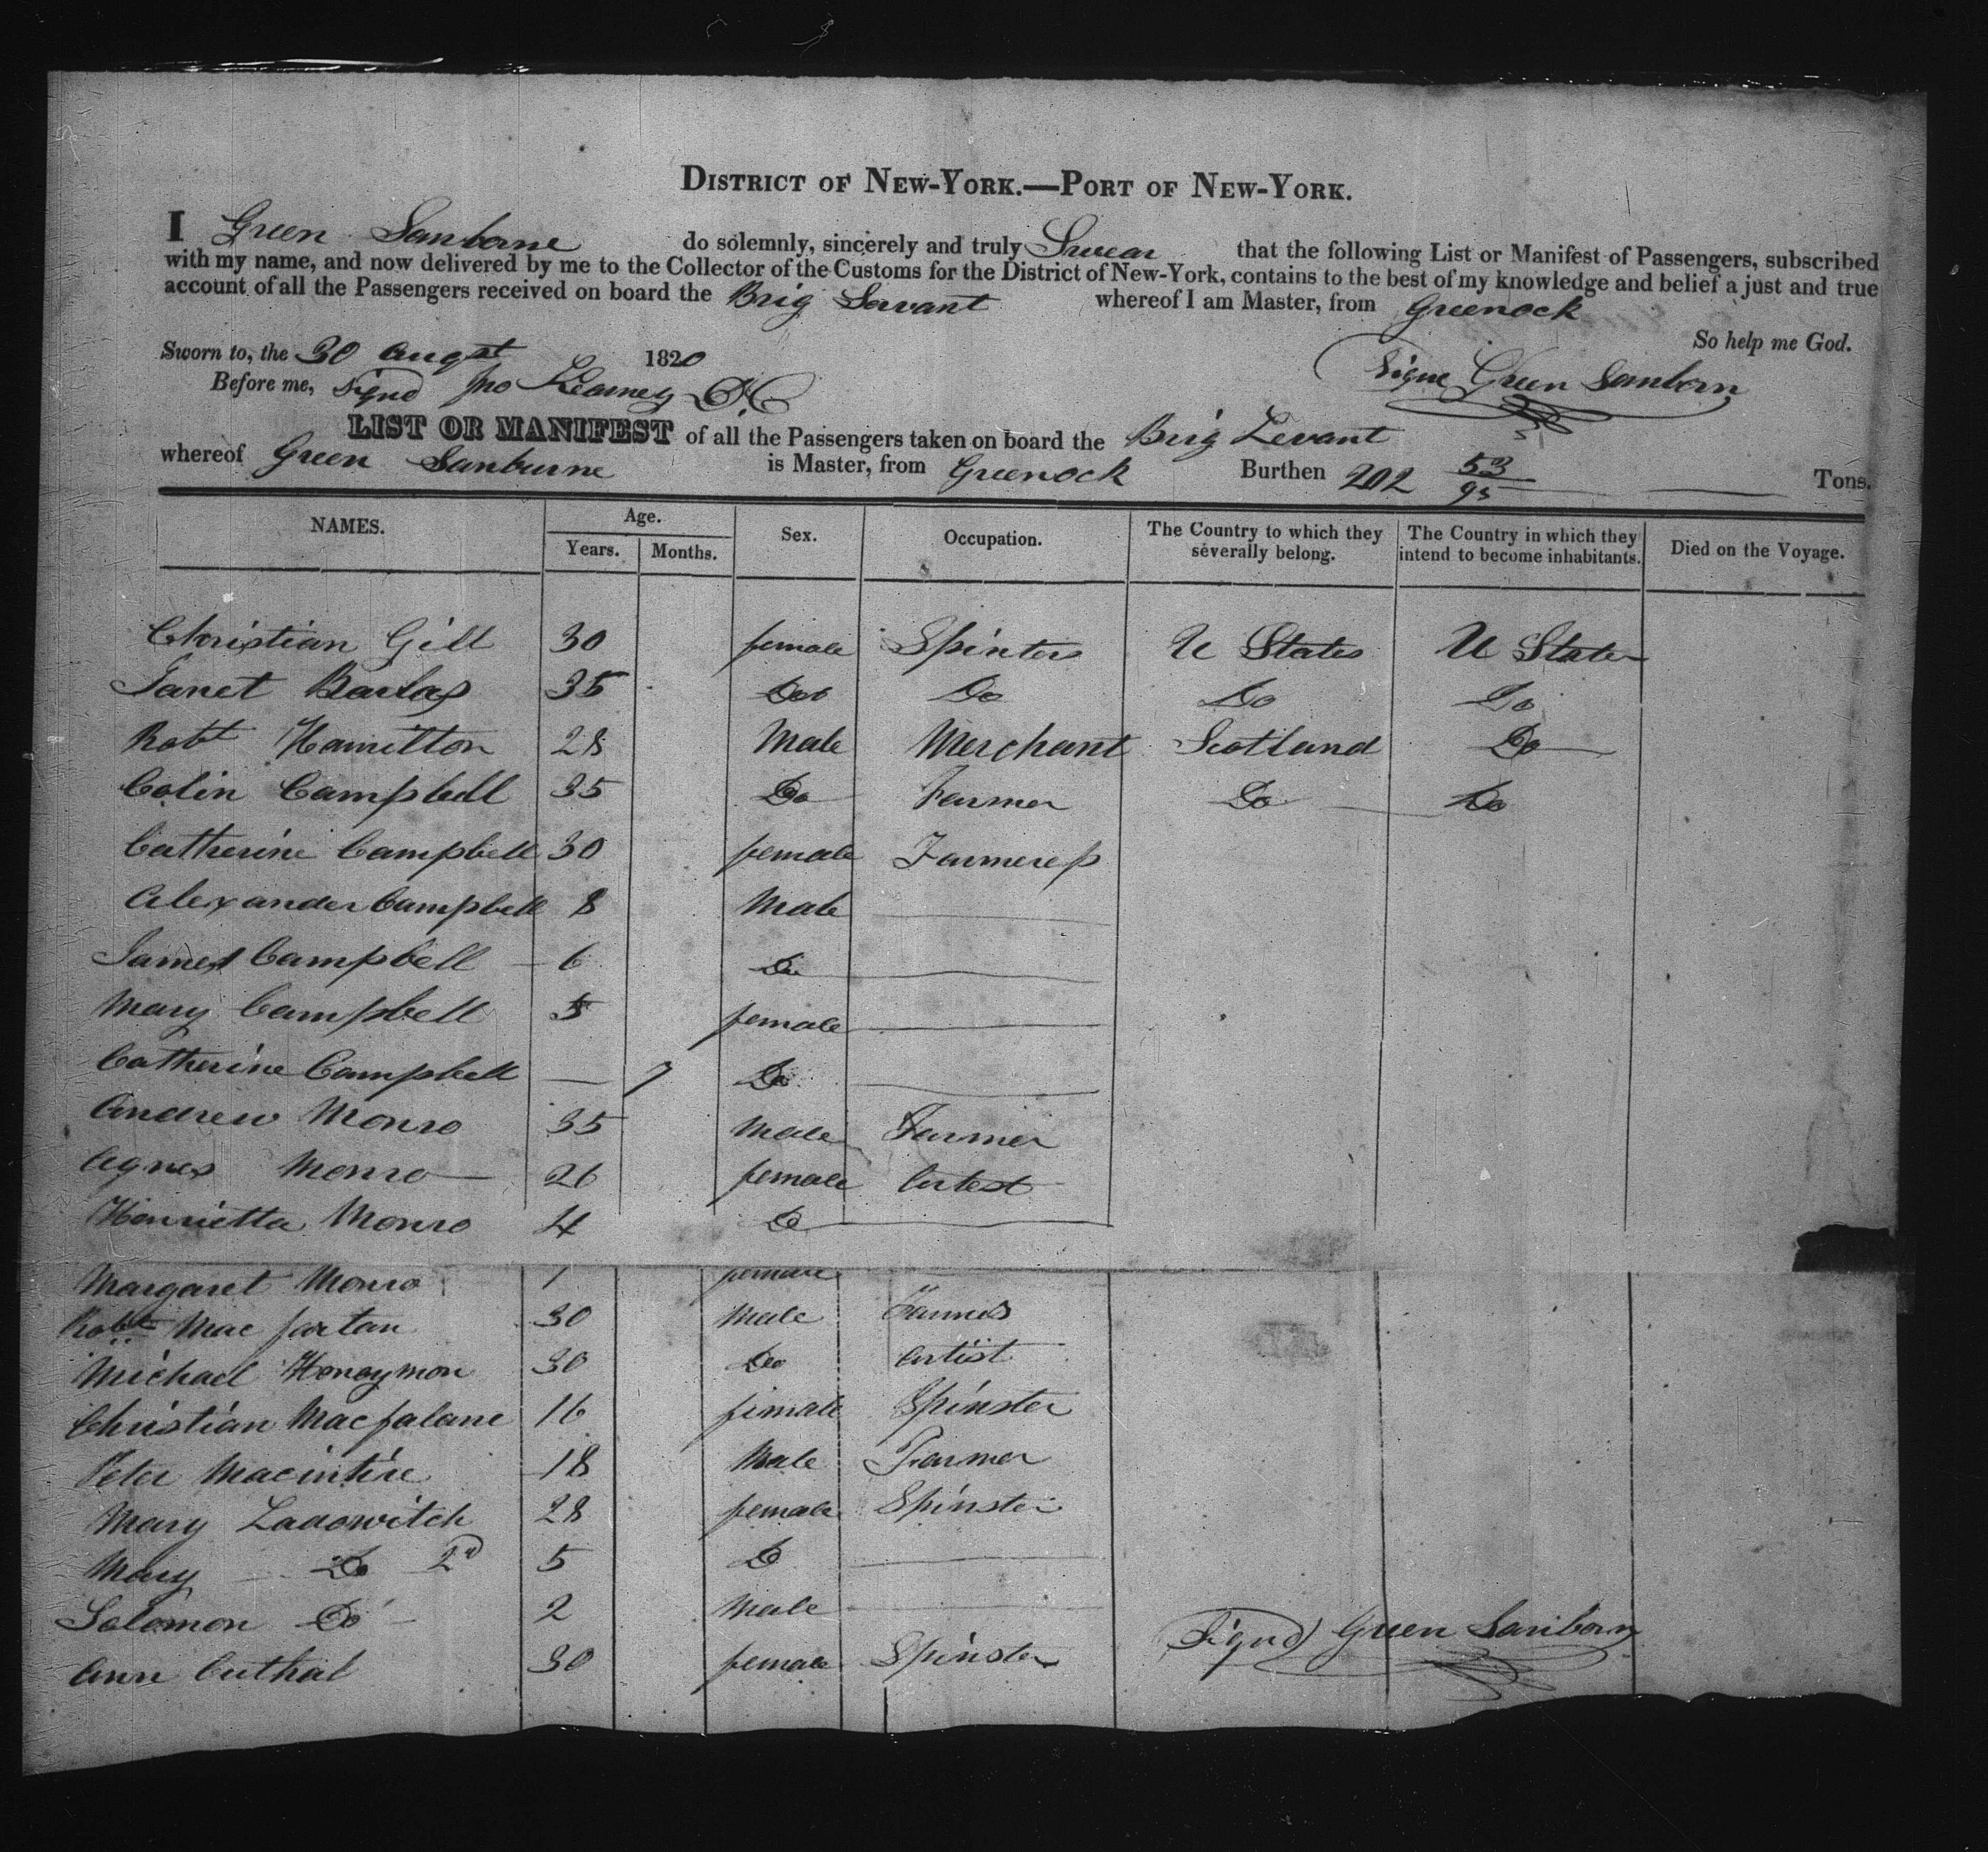 DISTRICT OF NEW-YORK.—PORT OF NEW-YORK.
I Green Sanborne do solemnly, sincerely and truly Swear that the following List or Manifest of Passengers, subscribed
with my name, and now delivered by me to the Collector of the Customs for the District of New-York, contains to the best of my knowledge and belief a just and true
account of all the Passengers received on board the Brig Levant whereof I am Master, from Greenock
So help me God.
Sworn to, the 30 Augst 1820
Before me, Signd Jno Kearney DC Signe Green Sanborn
LIST OR MANIFEST of all the Passengers taken on board the Brig Levant
whereof Green Sanburne is Master, from Greenock Burthen 202 53/95 Tons.
NAMES. Age. Years. Months. Sex. Occupation. The Country to which they severally belong. The Country in which they intend to become inhabitants. Died on the Voyage.
Christian Gill 30 female Spinters U States U States
Janet 35 Do Do Do Do
Robt Hamilton 28 Male Merchant Scotland Do
Colin Campbell 35 Do Farmer Do Do
Catherine Campbell 30 female Farmeress
Alexander Campbell 8 Male
James Campbell 6 Do
Mary Campbell 5 female
Catherine Campbell — 7 Do
Andrew Monro 35 Male Farmer
Agnes Monro 26 female Artest
Henrietta Monro 4 Do
Margaret Monro 1 female
Robt Mac fartan 30 Male Farmer
Michael Honeymon 30 Do Artist
Christian Macfalane 16 female Spinster
Peter Macintire 18 Male Farmer
Mary Ladowitch 28 female Spinster
Mary Do 2d 5 Do
Solomon Do 2 Male
Ann Cuthal 30 female Spinster
Signd Green Sanborn